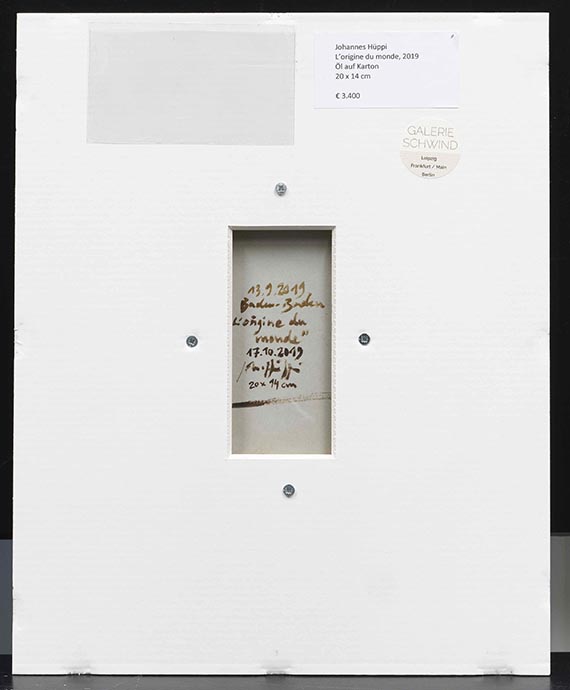 Johannes Hüppi
L'origine du monde, 2019
Öl auf Karton
20 x 14 cm
€ 3.400
GALERIE
SCHWIND
Leipzig
Frankfurt / Main
Berlin
13.9.2019
Baden-Baden
L'origine du
monde"
17.10.2019
20 x 14 cm